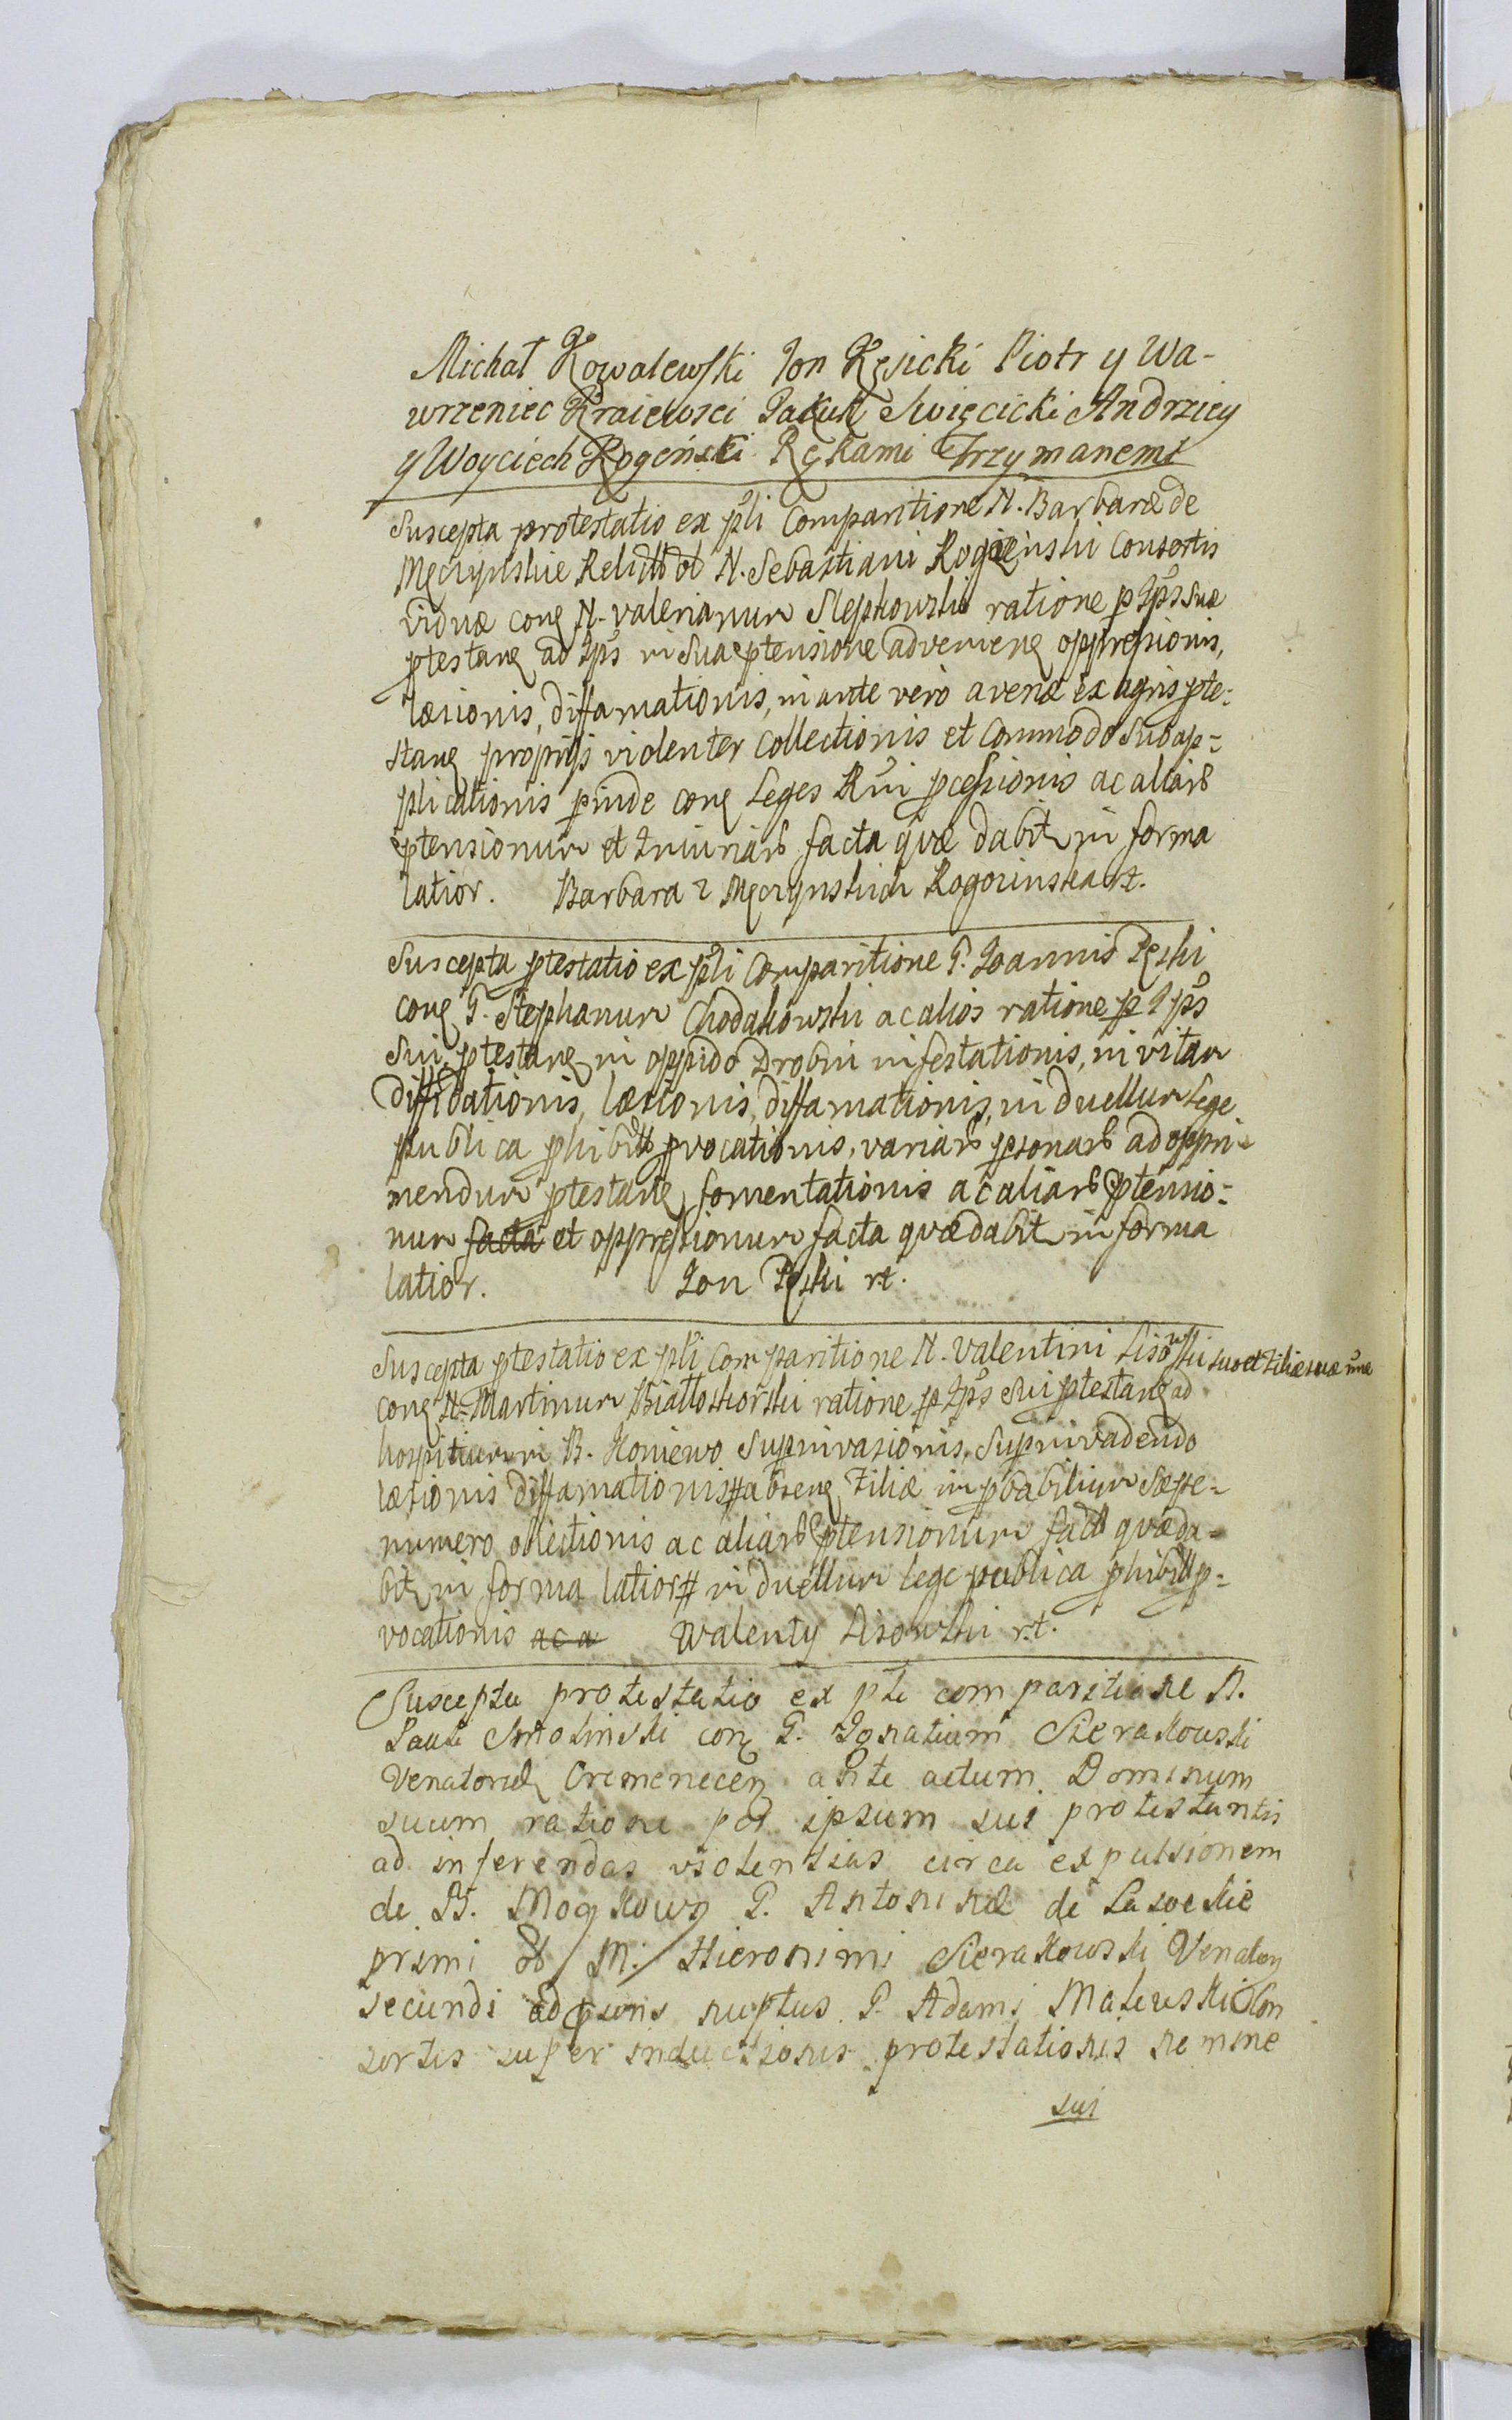 Michał Kowalewski Jon Kęsicki Piotr y Wa-
wrzeniec Kraiewsci Jakub Swięcicki Andrziey
y Woyciech Rogeński Rękami Trzymanemi
Suscepta protestatio ex pli Comparitione N. Barbaræ de
Męczynskie Relictæ olt N. Sebastiani Rogozinski Consortis
viduæ cong N. Valerianum Slepkowski ratione p Ips suæ
ptestang ad Ips in Sua ptensione advenieng oppressionis,
læsionis, diffamationis, in ante vero avenæ ex agris pte-
stang proprijs violenter collectionis et Commodo Suo ap-
plicationis pinde cong Leges Rni pcessionis ac aliar
ptensionum et Iniuriar facta quæ dabit in forma
latior. Barbara z Męczynskich Rogozinska rt.
Suscepta ptestatio ex pli Comparitione G. Joannis Pęski
cong G. Stephanum Chodakowski ac alios ratione p Ips
Sui ptestang in oppido Drobin infestationis, in vitam
diffidationis, læsionis, diffamationis, in duellum Lege
publica phibitt pvocationis, variar psonar ad oppri-
mendum ptestang, fomentationis ac aliar ptensio-
num facta et oppressionum facta quæ dabit in forma
latior. Jon Pęski rt.
Suscepta ptestatio ex pli Comparitione N. Valentini Lisowski suo et Filiæ suæ nne
cong N. Martinum Białłoskorski ratione p Ips Sui ptestang ad
hospitium in B. Koniewo Supinvasionis, Supinvadendo
læsionis diffamationis # abseng Filiæ improbabilium Sæpe-
numero obiectionis ac aliar ptensionum fact quæ da-
bit in forma latior # in duellum lege publica phibitt p-
vocationis ac a Walenty Lisowski rt.
Suscepta protestatio ex pli comparitione N.
Pauli Smolinski cong G. Ignatium Sierakowski
Venatorid Cremenecen ante actum Dominum
suum ratione per ipsum sui protestantis
ad inferendas violentias circa expulsionem
de B. Mogkowo G. Antoninæ de Lasockie
primi olt M. Hieronimi Sierakowski Venatorg
secundi adpræns nuptus G. Adami Maleuski Con
sortis super inductionis protestationis nemine
sui